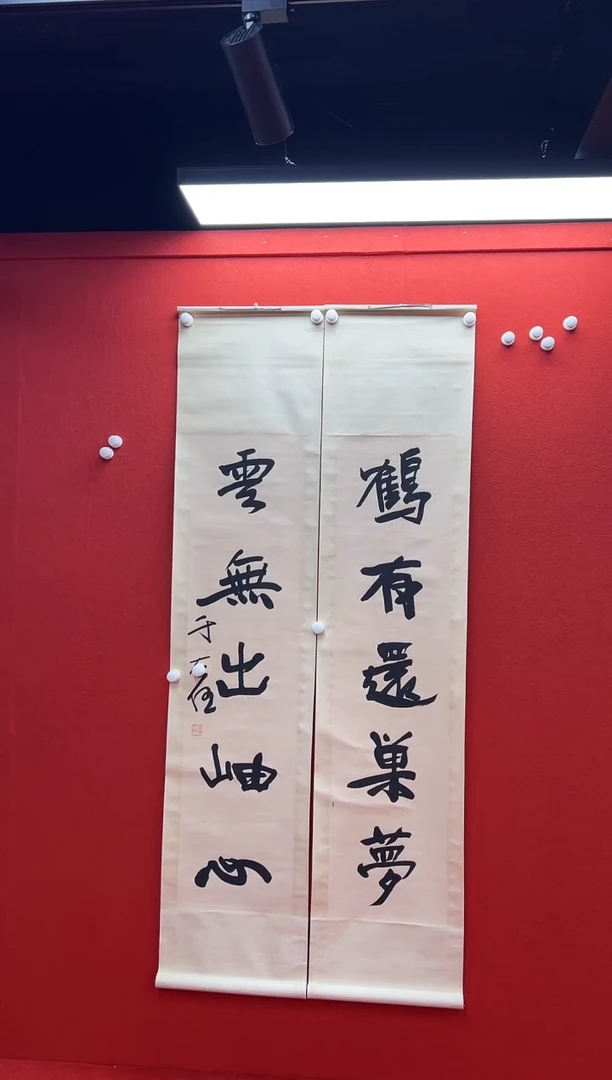 鶴有還巢夢
雲無出岫心
于右任